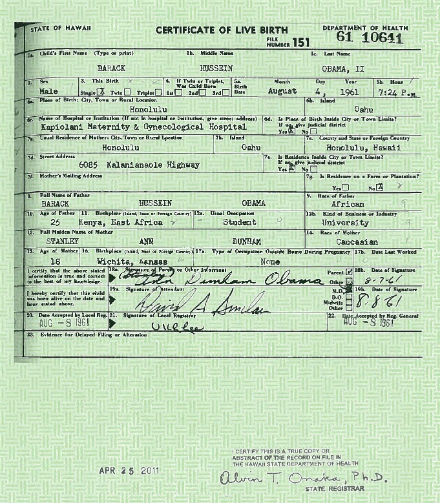 STATE OF HAWAII CERTIFICATE OF LIVE BIRTH DEPARTMENT OF HEALTH
FILE NUMBER 151 61 10641
1a. Child's First Name (Type or print) 1b. Middle Name 1c. Last Name
BARACK HUSSEIN OBAMA, II
2. Sex 3. This Birth 4. If Twin or Triplet, Was Child Born 5a. Birth Date Month Day Year 5b. Hour
Male Single X Twin Triplet 1st 2nd 3rd August 4, 1961 7:24 P.M.
6a. Place of Birth: City, Town or Rural Location 6b. Island
Honolulu Oahu
6c. Name of Hospital or Institution (If not in hospital or institution, give street address) 6d. Is Place of Birth Inside City or Town Limits?
If no, give judicial district
Kapiolani Maternity & Gynecological Hospital Yes X No
7a. Usual Residence of Mother: City, Town or Rural Location 7b. Island 7c. County and State or Foreign Country
Honolulu Oahu Honolulu, Hawaii
7d. Street Address 7e. Is Residence Inside City or Town Limits?
If no, give judicial district
6085 Kalanianaole Highway Yes X No
7f. Mother's Mailing Address 7g. Is Residence on a Farm or Plantation?
Yes No X
8. Full Name of Father 9. Race of Father
BARACK HUSSEIN OBAMA African
10. Age of Father 11. Birthplace (Island, State or Foreign Country) 12a. Usual Occupation 12b. Kind of Business or Industry
25 Kenya, East Africa Student University
13. Full Maiden Name of Mother 14. Race of Mother
STANLEY ANN DUNHAM Caucasian
15. Age of Mother 16. Birthplace (Island, State or Foreign Country) 17a. Type of Occupation Outside Home During Pregnancy 17b. Date Last Worked
18 Wichita, Kansas None
I certify that the above stated information is true and correct to the best of my knowledge. 18a. Signature of Parent or Other Informant Parent Other 18b. Date of Signature
Dunham Obama 8-7-61
I hereby certify that this child was born alive on the date and hour stated above. 19a. Signature of Attendant M.D. D.O. Midwife Other 19b. Date of Signature
David A Sinclair 8-8-61
20. Date Accepted by Local Reg. 21. Signature of Local Registrar 22. Date Accepted by Reg. General
AUG -8 1961 U K L Lee AUG -8 1961
23. Evidence for Delayed Filing or Alteration
APR 25 2011
I CERTIFY THIS IS A TRUE COPY OR
ABSTRACT OF THE RECORD ON FILE IN
THE HAWAII STATE DEPARTMENT OF HEALTH
Alvin T. Onaka, Ph.D.
STATE REGISTRAR